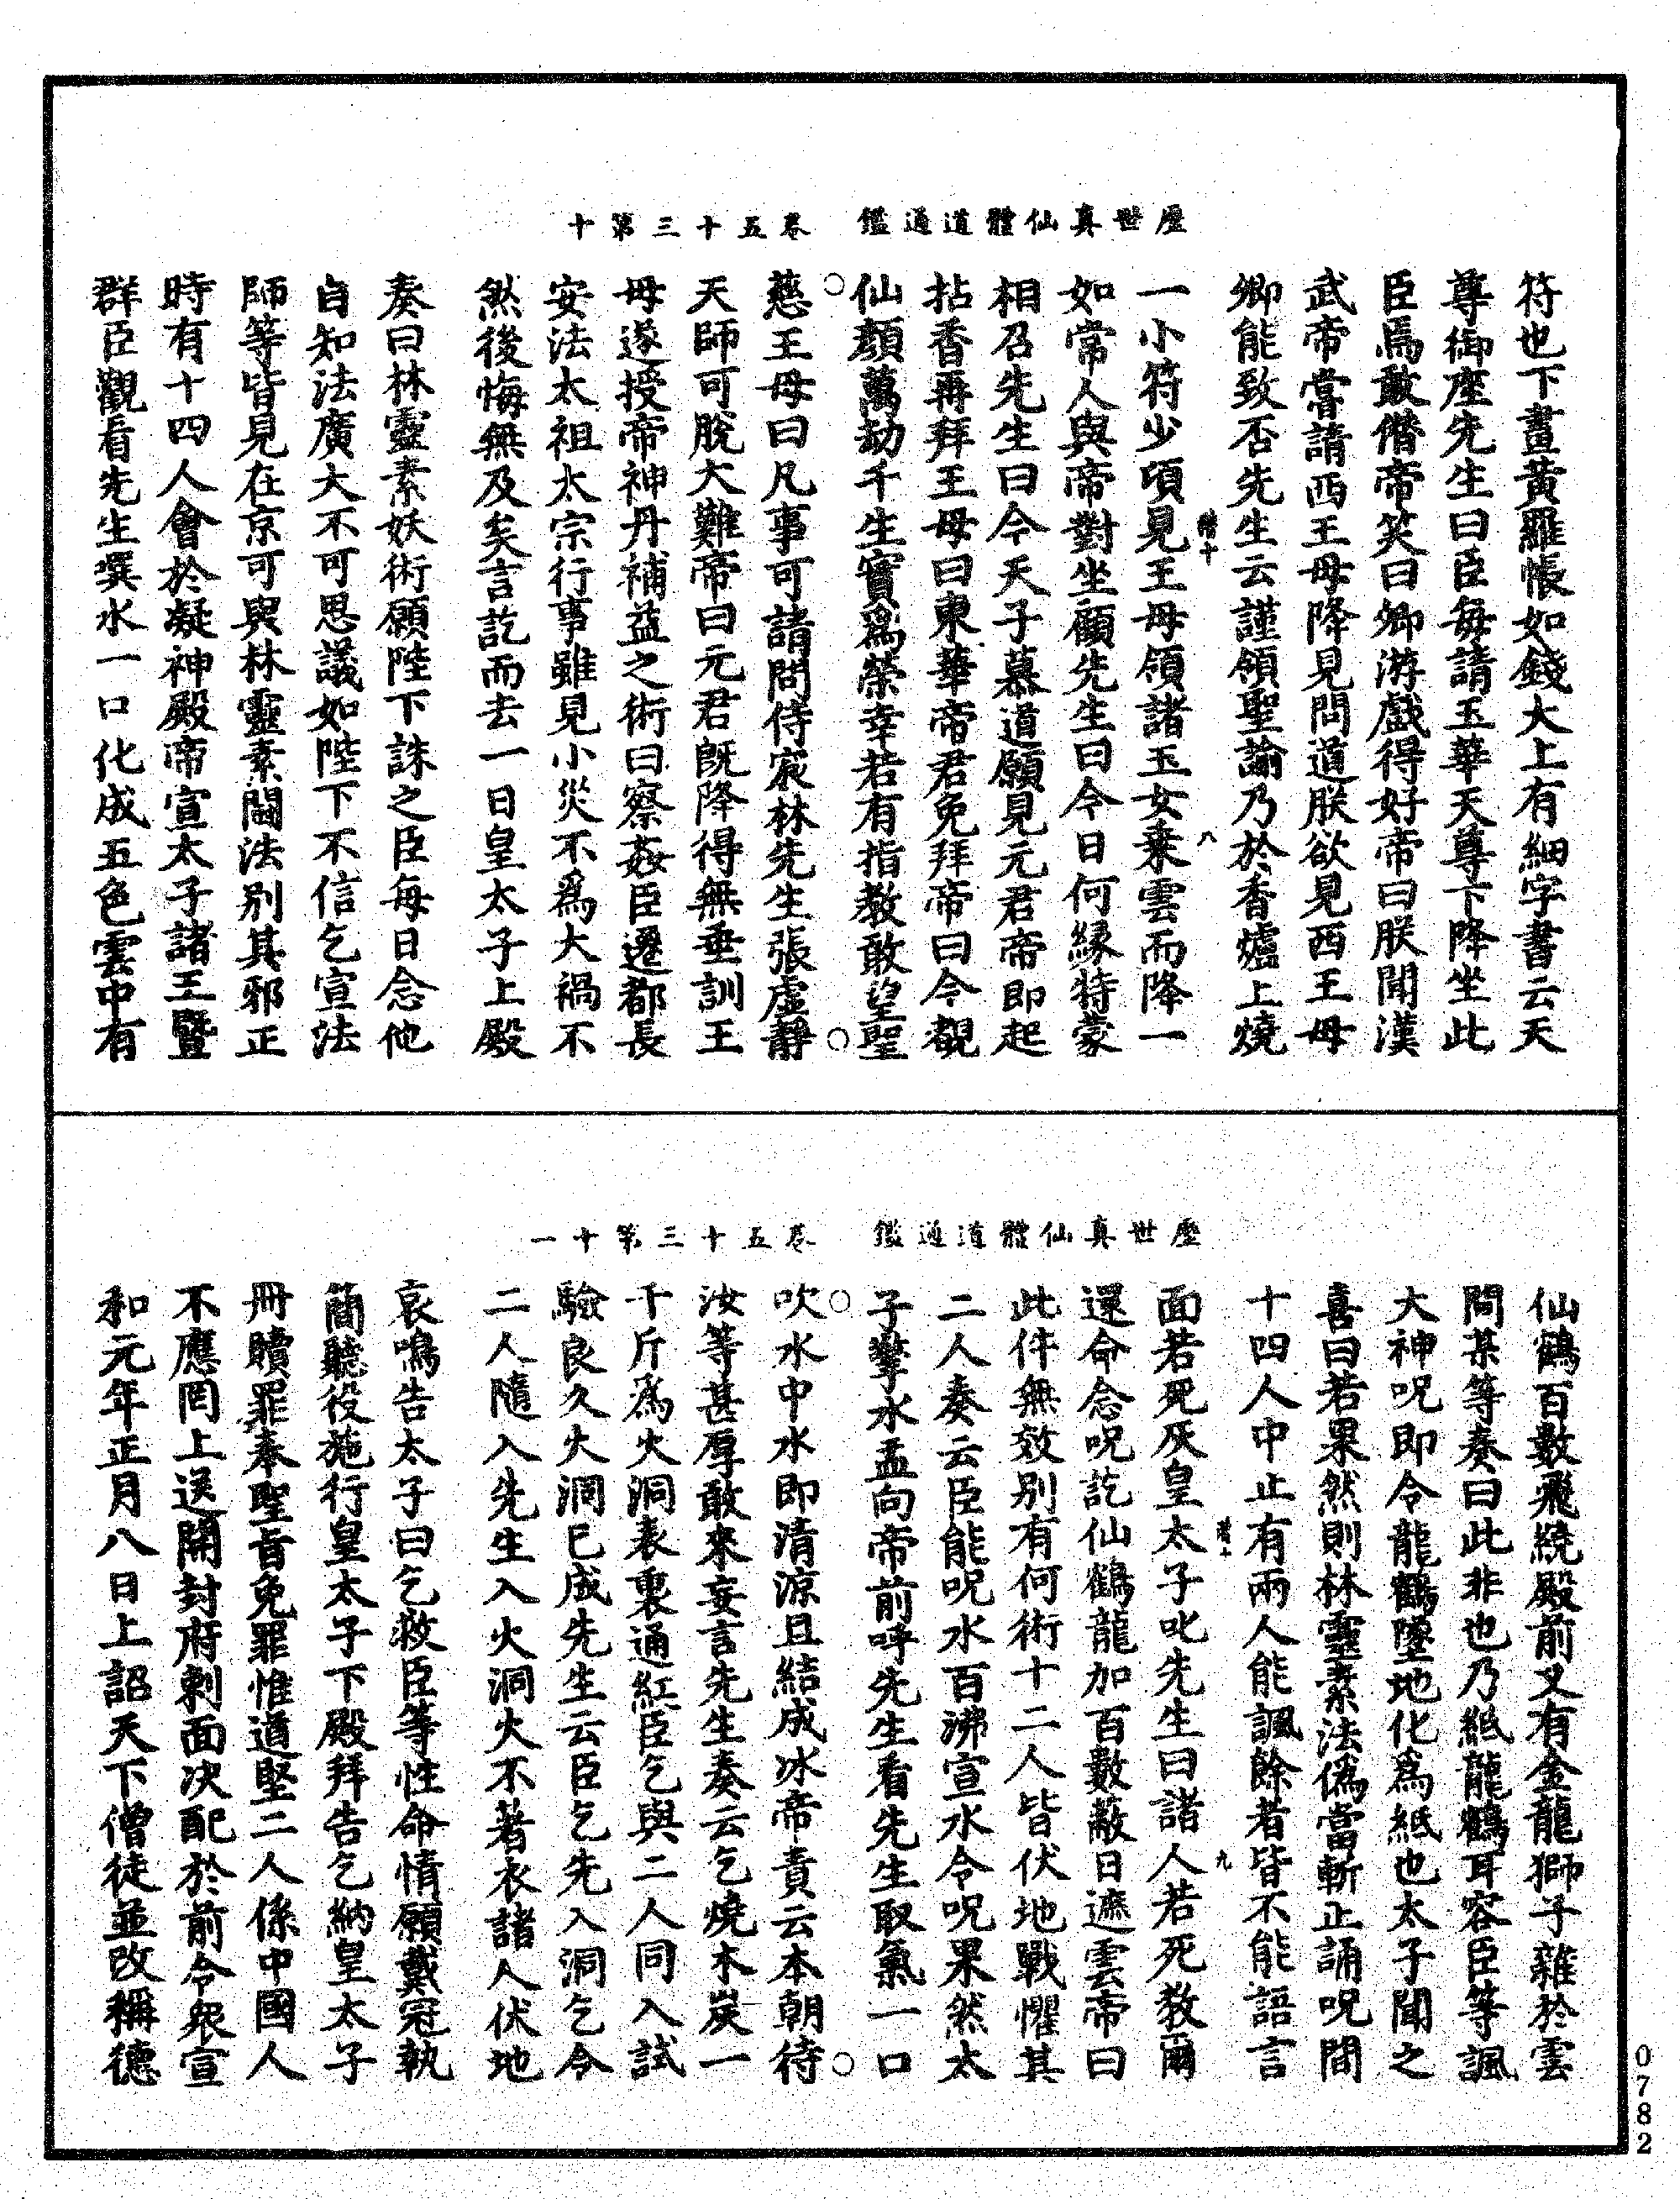 歷世真仙體道通鑑　卷五十三第十
符也下畫黃羅帳如錢大上有細字書云天
尊御座先生曰臣每請玉華天尊下降坐此
臣焉敢僭帝笑曰卿游戲得好帝曰朕聞漢
武帝嘗請西王母降見問道朕欲見西王母
卿能致否先生云謹領聖諭乃於香爐上燒
一小符少頃見王母領諸玉女乘雲而降一
如常人與帝對坐顧先生曰今日何緣特蒙
相召先生曰今天子慕道願見元君帝即起
拈香再拜王母曰東華帝君免拜帝曰今覩
仙顏萬劫千生實爲榮幸若有指教敢望聖
慈王母曰凡事可請問侍宸林先生張虛靜
天師可脫大難帝曰元君既降得無垂訓王
母遂授帝神丹補益之術曰察姦臣遷都長
安法太祖太宗行事雖見小災不爲大禍不
然後悔無及矣言訖而去一日皇太子上殿
奏曰林靈素妖術願陛下誅之臣每日念他
自知法廣大不可思議如陛下不信乞宣法
師等皆見在京可與林靈素鬪法別其邪正
時有十四人會於凝神殿帝宣太子諸王暨
群臣觀看先生噀水一口化成五色雲中有
八
歷世真仙體道通鑑　卷五十三第十一
仙鶴百數飛繞殿前又有金龍獅子雜於雲
間某等奏曰此非也乃紙龍鶴耳容臣等諷
大神呪即令龍鶴墜地化爲紙也太子聞之
喜曰若果然則林靈素法僞當斬正誦呪間
十四人中止有兩人能諷餘者皆不能語言
面若死灰皇太子叱先生曰諸人若死教爾
還命念呪訖仙鶴龍加百數蔽日遮雲帝曰
此件無效別有何術十二人皆伏地戰懼其
二人奏云臣能呪水百沸宣水令呪果然太
子擎水盂向帝前呼先生看先生取氣一口
吹水中水即清涼且結成冰帝責云本朝待
汝等甚厚敢來妄言先生奏云乞燒木炭一
千斤爲火洞表裏通紅臣乞與二人同入試
驗良久火洞已成先生云臣乞先入洞乞令
二人隨入先生入火洞火不著衣諸人伏地
哀鳴告太子曰乞救臣等性命情願戴冠執
簡聽役施行皇太子下殿拜告乞納皇太子
冊贖罪奉聖旨免罪惟道堅二人係中國人
不應罔上送開封府刺面决配於前令眾宣
和元年正月八日上詔天下僧徒並改稱德
九
0782